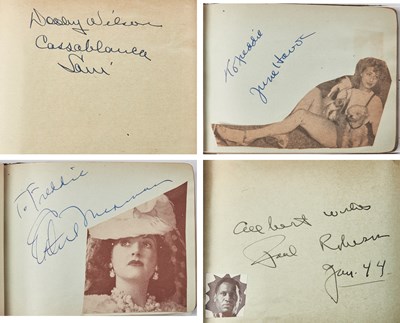 Dooley Wilson
Cassablanca
Sam
To Freddie
June Havoc
To Freddie
Ethel Merman
All best wishes
Paul Robeson
Jan. 44